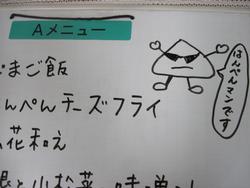 Aメニュー
まご飯
んぺんチーズフライ
花和え
根と小松菜の味噌汁
はんぺんマンです